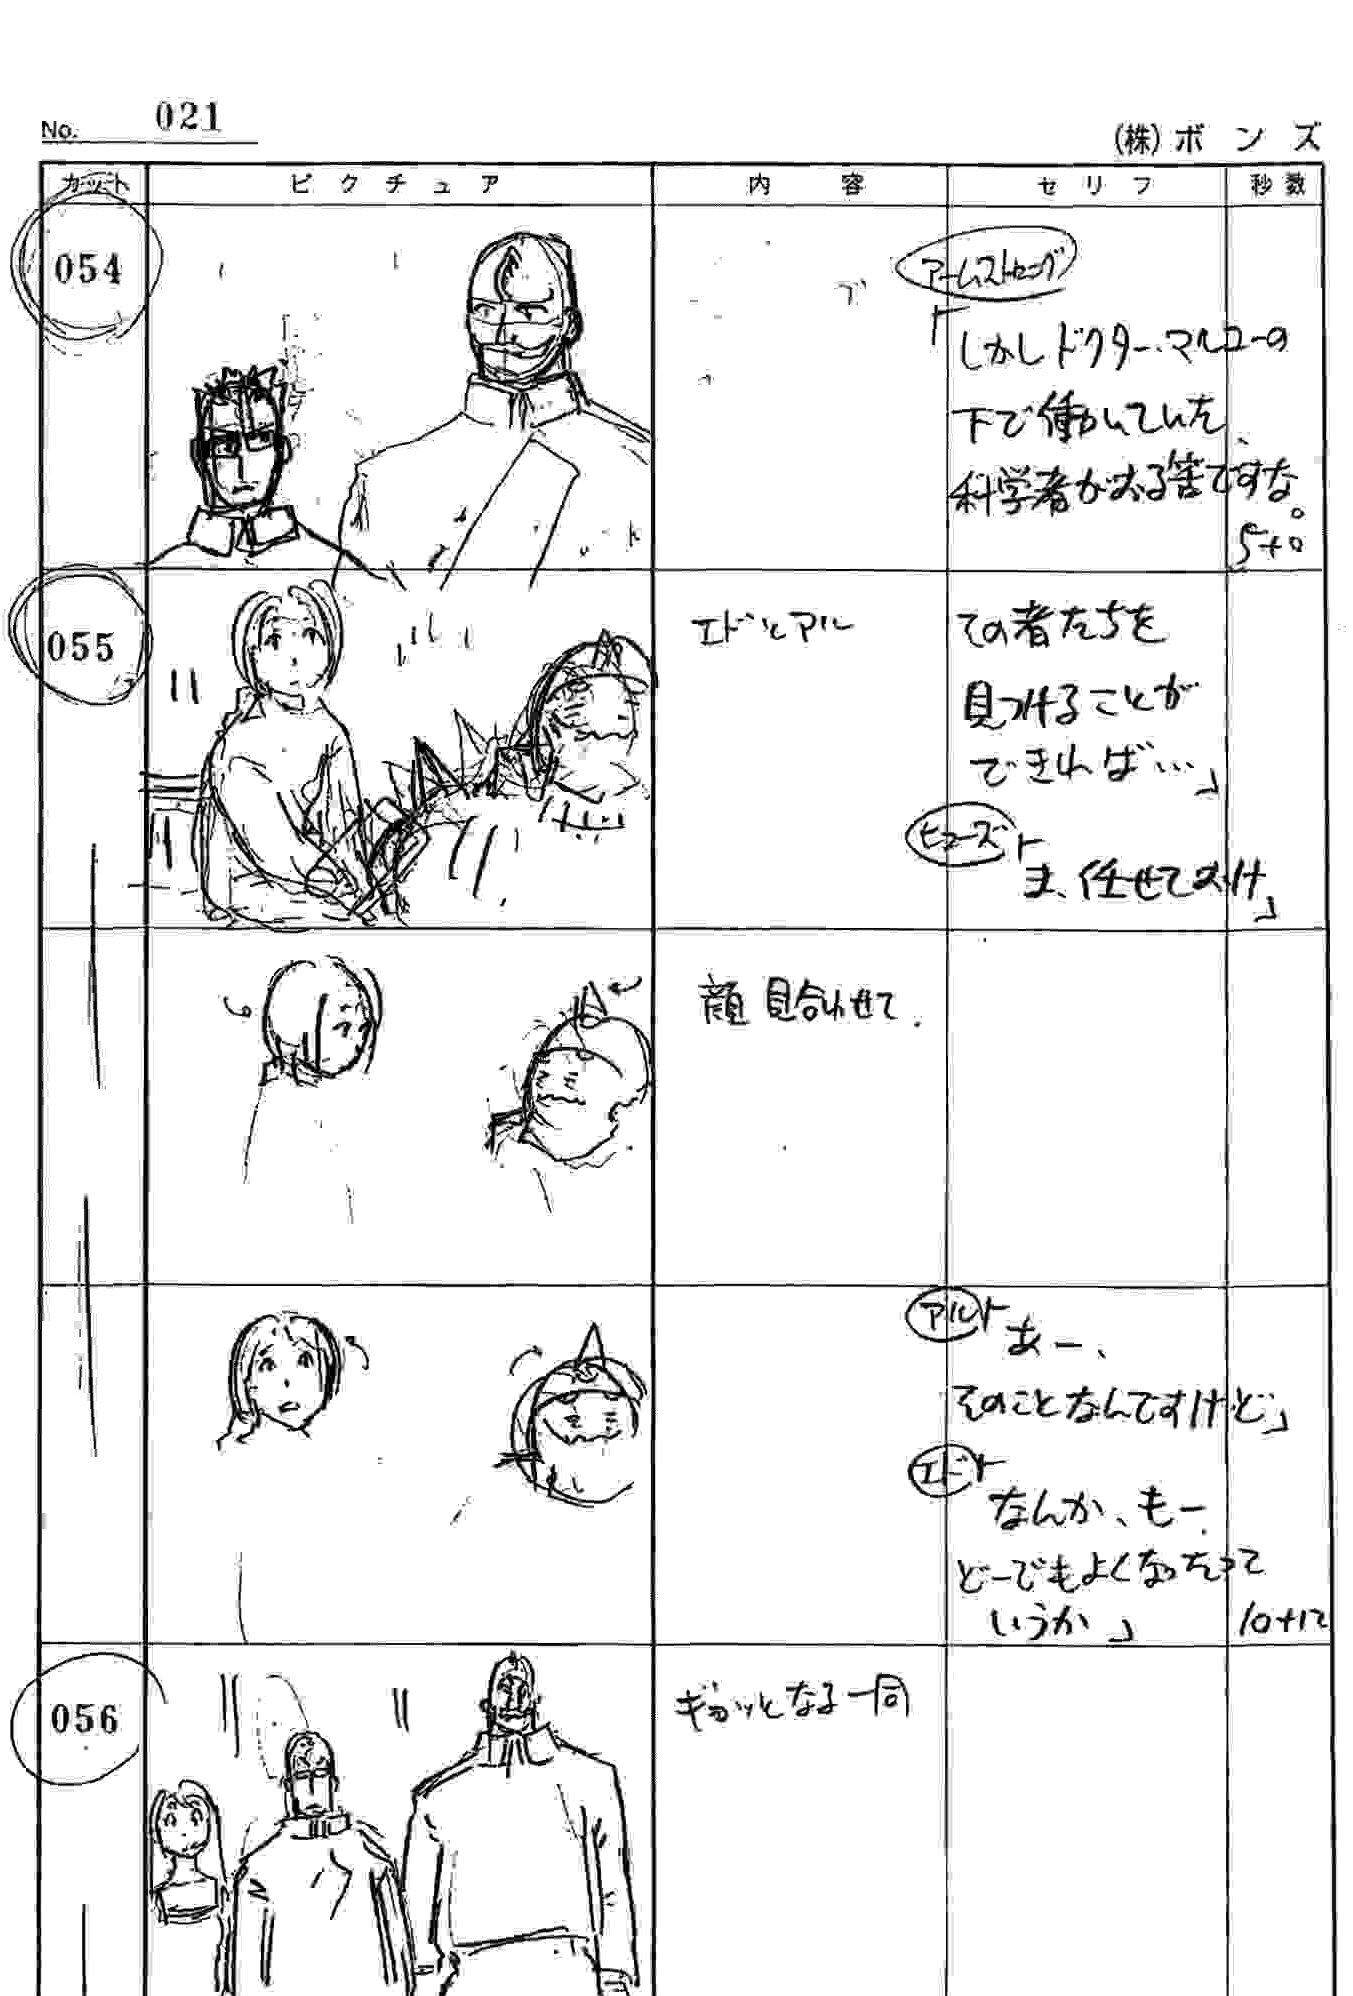 No. 021
(株)ボンズ
カット ピクチュア 内容 セリフ 秒数
054
アームストロング
「しかしドクター・マルコーの
下で働いていた、
科学者がおる筈ですな。
5+0
055
エドとアル
その者たちを
見つけることが
できれば…」
ヒューズ「
ま、任せておけ」
顔見合わせて.
アル「
あー、
そのことなんですけど」
エド「
なんか、もー
どーでもよくなったって
いうか」
10+12
056
ギョッとなる一同